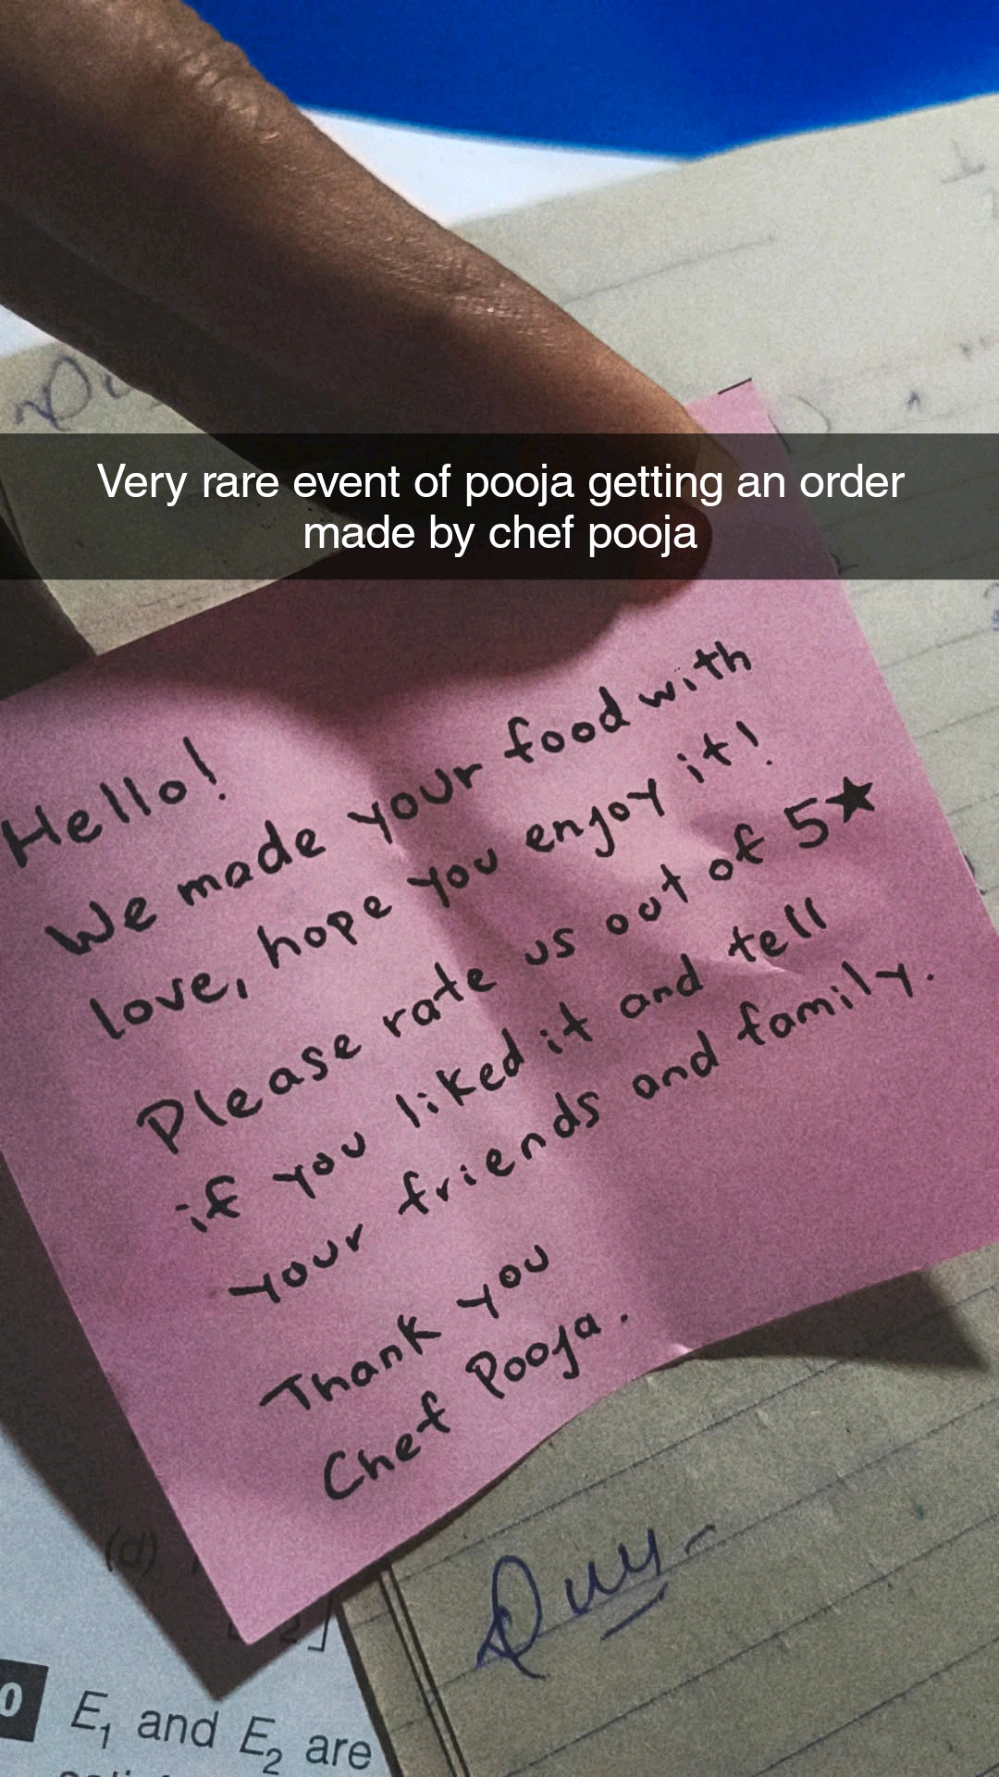 Very rare event of pooja getting an order
made by chef pooja
Hello!
We made your food with
love, hope you enjoy it!
Please rate us out of 5★
if you liked it and tell
your friends and family.
Thank you
Chef Pooja.
(d)
E₁ and E₂ are